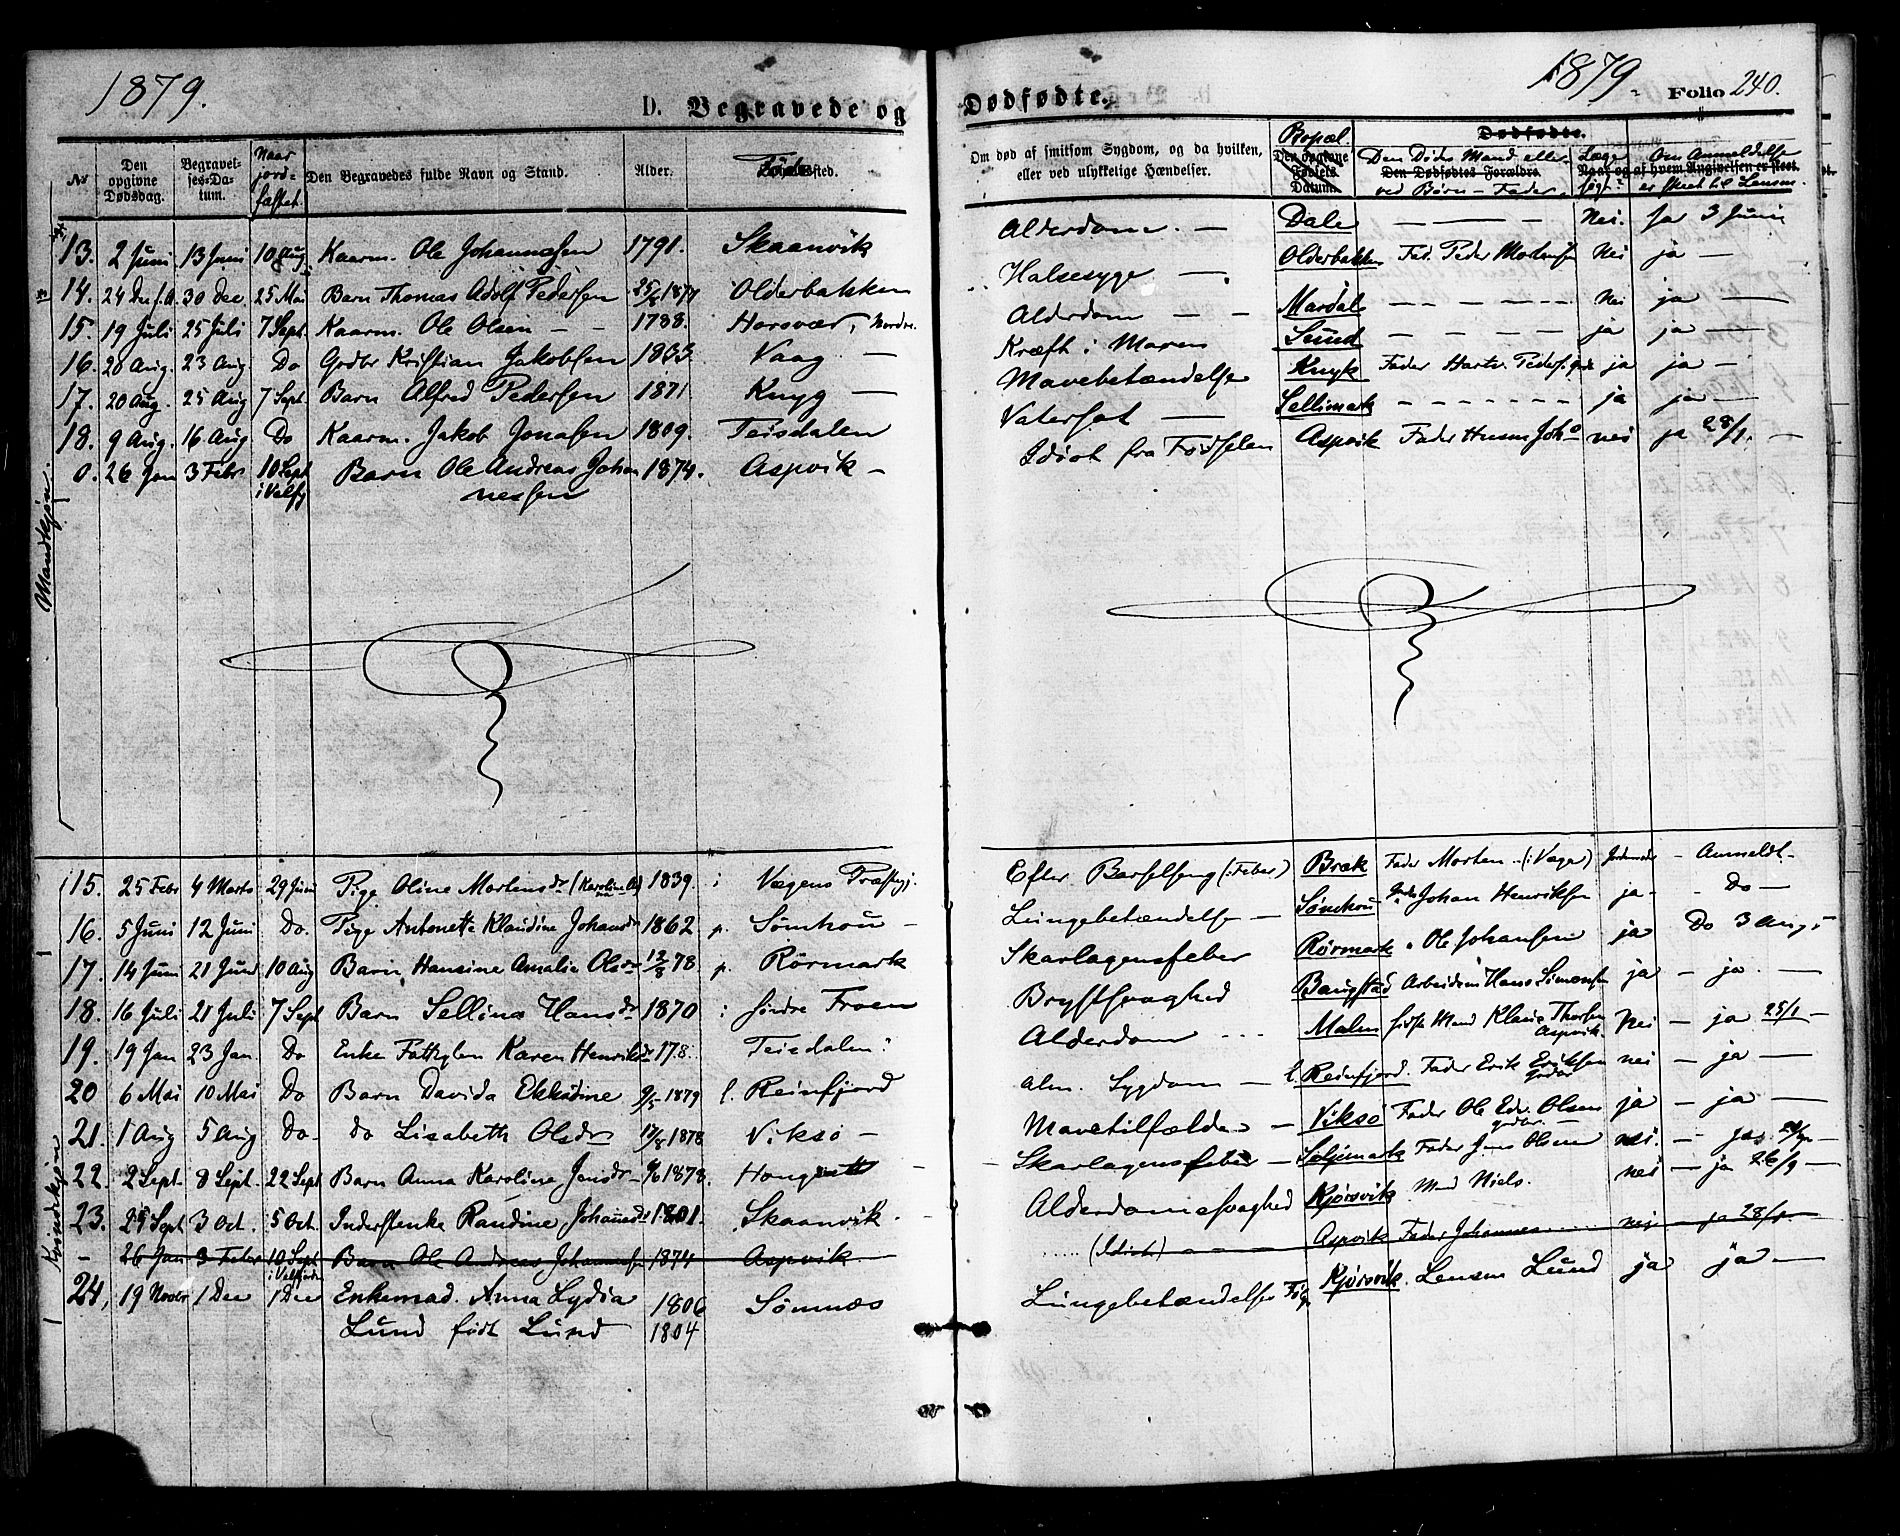 1879.
D. Begravede og
Dødfødte.
1879.
Folio 240.
No
Den opgivne Dødsdag.
Begravelses-Datum.
Naar jordfæstet
Den Begravedes fulde Navn og Stand.
Alder.
Fødested.
Om død af smitsom Sygdom, og da hvilken, eller ved ulykkelige Hændelser.
Bopæl.
Den opgivne Fødsels Datum.
Dødfødte.
Den Dødes Mand eller
Den Dødfødtes Forældre.
ved Børn - Fader.
Læge søgt?
Om Anmeldelse
Naar og af hvem Angivelsen er skeet.
er skeet til Lensm.
Mandkjøn.
13. 2 Juni 13 Juni 10 Aug Kaarm. Ole Johannesen 1791. Skaanvik Alderdom. — Dale — — — Nei. ja 3 Juni
14. 24 Dec f.A. 30 Dec 25 Mai Barn Thomas Adolf Pedersen 25/6 1877 Olderbakken Halsesyge — Olderbakken Fad. Peder Nei ja —
15. 19 Juli 25 Juli 7 Sept. Kaarm. Ole Olsen - - 1788. Horsvær, Nordre. Alderdom - - Mardal - - - - Nei ja —
16. 20 Aug. 23 Aug. Do Grdbr Kristian Jakobsen 1833 Vaag — Kræft i Maven Sund - - - - ja ja —
17. 20 Aug. 25 Aug 7 Sept Barn Alfred Pedersen 1871 Knyg — Mavebetændelse Knyk Fader Hartv. Peders. ja ja —
18. 9 Aug. 16 Aug. Do Kaarm. Jakob Jonasen 1809. Teisdalen Vatersot — Sellimark - - - - - - - ja ja —
0. 26 Jan 3 Febr 10 Sept i Velfj Barn Ole Andreas Johannessen 1874. Aspvik - Idiot fra Fødselen Aspvik Fader nei ja 28/1. —
Kvindekjøn
15. 25 Febr 4 Marts 29 Juni Pige Oline Mortensdr 1839. i Vegens Præstegj. Efter Barselseng (: Feber) Bræk Fader Morten (i Vega) Jordemoder - Anmeldt -
16. 5 Juni 12 Juni Do. Pige Antonette Klaudine Johansdr 1862 p. Sømhou - Lungebetændelse — Sømhou Johan Henriksen ja - - Do —
17. 14 Juni 21 Juni 10 Aug Barn Hansine Amalie Olsdr 12/8 78 p. Rörmark Skarlagensfeber Rörmark " Ole Johansen ja Do 3 Aug.
18. 16 Juli 21 Juli 7 Sept Barn Sellina Hansdr 1870 i søndre Froen Brystsvaghed Bangstad Arbeidsm Hans Simonsen ja - ja. —
19. 19 Jan 23 Jan. Do Enke Fattiglem Karen Henriksdr 178. Teisdalen Alderdom Malm sidste Mand Klaus Thorsen Aspvik. Nei - ja 25/1 -
20 6 Mai 10 Mai Do Barn Davida Ekkødine 9/5 1879 l. Reinfjord Alm. Sygdom — l. Reinfjord Fader Erik Eriksen Grdbr nei - ja —
21. 1 Aug 5 Aug Do- do Lisabeth Olsdr 17/8 1878 Viksø — Mavetilfælde - Viksø Fader Ole Edv. Olsen Grdbr ja - ja —
22. 2 Sept. 8 Sept. 22 Sept Barn Anna Karoline Jensdr 9/6 1878. Skarlagensfeber - Fader Jens Olsen nei. — ja
23. 25 Sept 3 Oct. 5 Oct. Inderstenke Randine Johansdr 1801. Skaanvik. Alderdomssvaghed Kjørsvik Mand Niels. nei - ja 26/9 —
- 26 Jan 3 Febr 10 Sept i Velfjorden Barn Ole Andreas Johannessen 1874 Aspvik (Idiot) Aspvik Fader Johannes nei ja 28/1.
24. 19 Novbr 1 Dec 1 Dec Enkemad. Anna Lydia Lund født Lund 1806 1804 Sømnæs Lungebetændelse Kjørsvik. Lensm Lund ja ja —